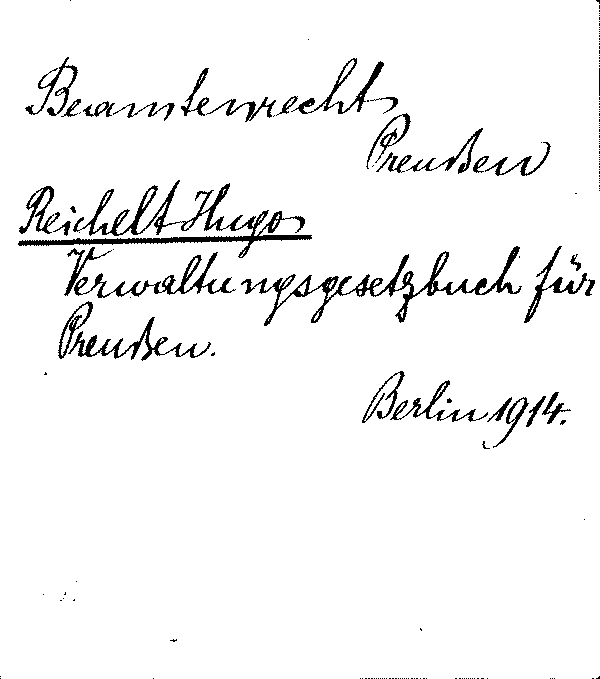 Beamtenrecht
Preußen
Reichelt Hugo
Verwaltungsgesetzbuch für
Preußen.
Berlin 1914.